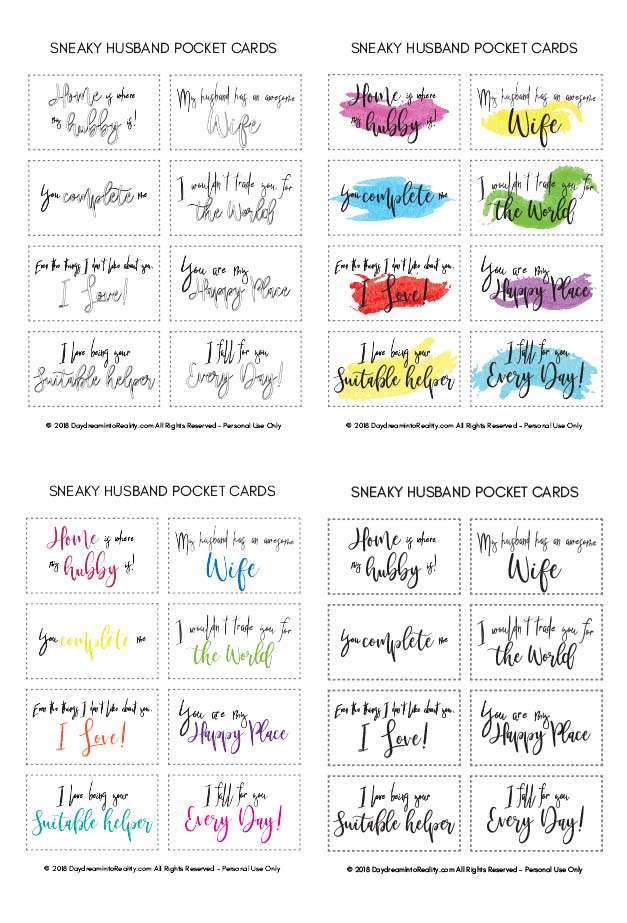 SNEAKY HUSBAND POCKET CARDS
Home is where
my hubby is!
My husband has an awesome
Wife
You complete me
I wouldn't trade you for
the World
Even the things I don't like about you.
I Love!
You are my
Happy Place
I love being your
Suitable helper
I fall for you
Every Day!
© 2018 DaydreamintoReality.com All Rights Reserved - Personal Use Only
SNEAKY HUSBAND POCKET CARDS
Home is where
my hubby is!
My husband has an awesome
Wife
You complete me
I wouldn't trade you for
the World
Even the things I don't like about you.
I Love!
You are my
Happy Place
I love being your
Suitable helper
I fall for you
Every Day!
© 2018 DaydreamintoReality.com All Rights Reserved - Personal Use Only
SNEAKY HUSBAND POCKET CARDS
Home is where
my hubby is!
My husband has an awesome
Wife
You complete me
I wouldn't trade you for
the World
Even the things I don't like about you.
I Love!
You are my
Happy Place
I love being your
Suitable helper
I fall for you
Every Day!
© 2018 DaydreamintoReality.com All Rights Reserved - Personal Use Only
SNEAKY HUSBAND POCKET CARDS
Home is where
my hubby is!
My husband has an awesome
Wife
You complete me
I wouldn't trade you for
the World
Even the things I don't like about you.
I Love!
You are my
Happy Place
I love being your
Suitable helper
I fall for you
Every Day!
© 2018 DaydreamintoReality.com All Rights Reserved - Personal Use Only